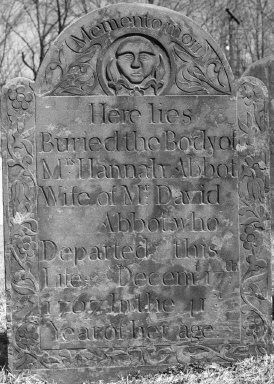 (Memento mori)
Here lies
Buried the Body of
Mrs Hannah Abbot
Wife of Mr David
Abbot who
Departed this
Life Decemr
in the
Year of her age